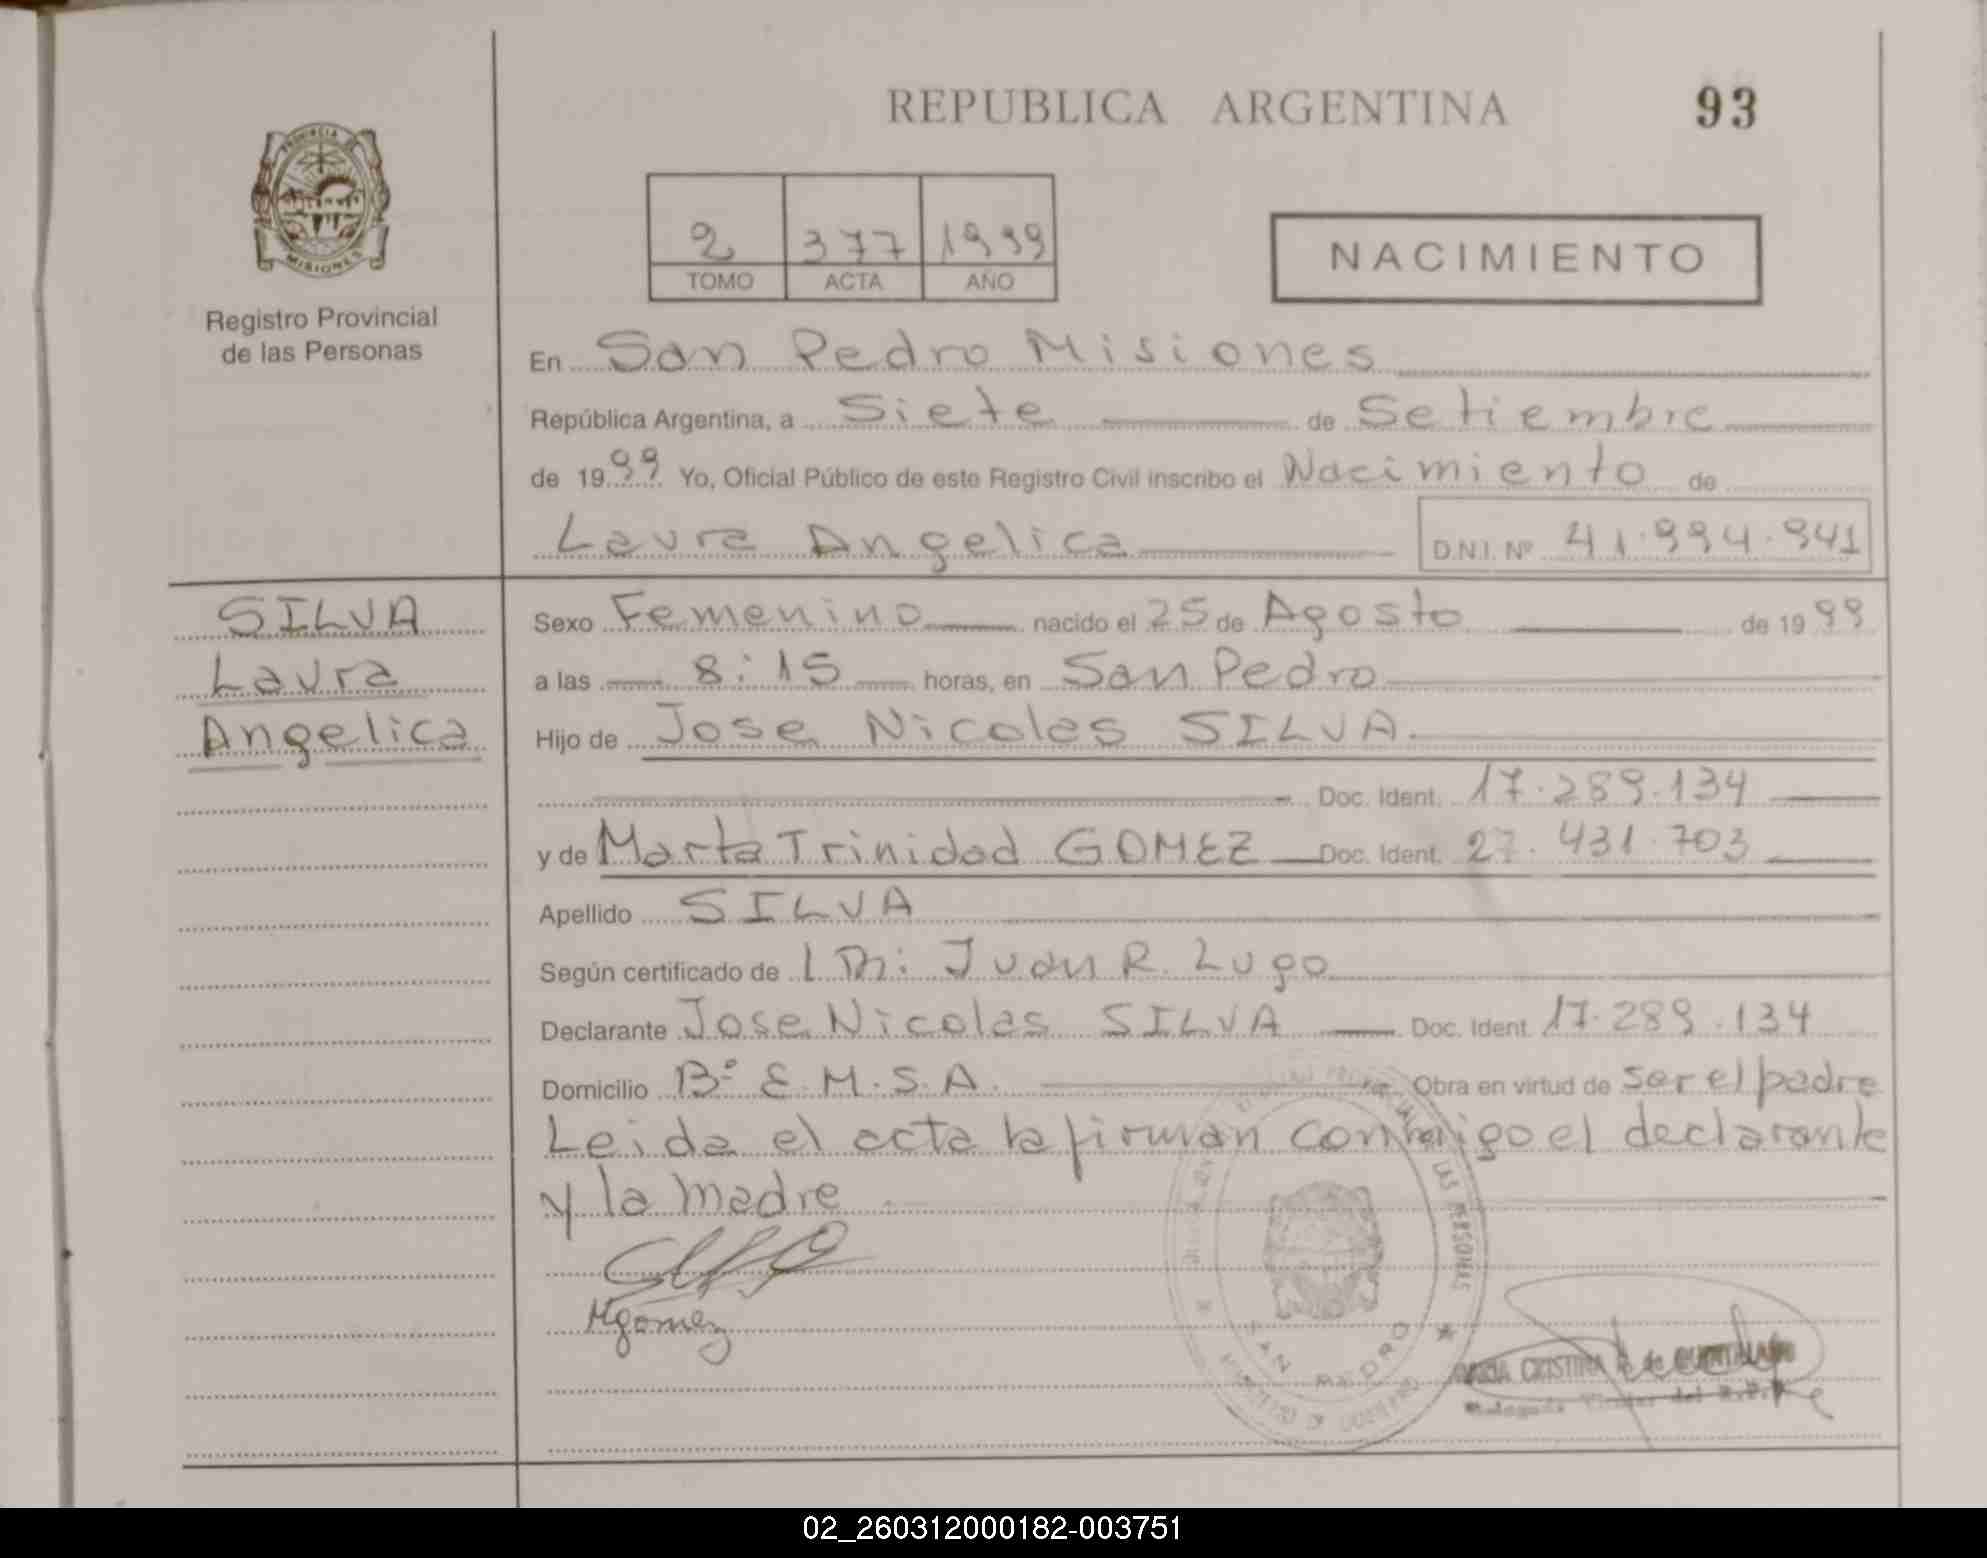 REPUBLICA ARGENTINA 93
PROVINCIA DE MISIONES
Registro Provincial
de las Personas
2 377 1999
TOMO ACTA AÑO
NACIMIENTO
En San Pedro Misiones
República Argentina, a Siete de Setiembre
de 1999 Yo, Oficial Público de este Registro Civil inscribo el Nacimiento de
Laura Angelica D.N.I. Nº 41.994.941
SILVA
Laura
Angelica
Sexo Femenino nacido el 25 de Agosto de 1999
a las 8:15 horas, en San Pedro
Hijo de Jose Nicolas SILVA.
Doc. Ident. 17.289.134
y de Marta Trinidad GOMEZ Doc. Ident. 27.431.703
Apellido SILVA
Según certificado de Juan R. Lugo
Declarante Jose Nicolas SILVA Doc. Ident. 17.289.134
Domicilio Bº E.M.S.A. Obra en virtud de ser el padre
Leida el acta la firman conmigo el declarante
y la madre
Mgomez
LAS PERSONAS
SAN PEDRO
MINISTERIO DE GOBIERNO
CRISTINA de
Titular del
02_260312000182-003751